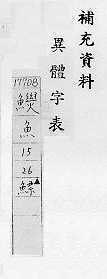 補充資料
異體字表
17708
魚
15
26